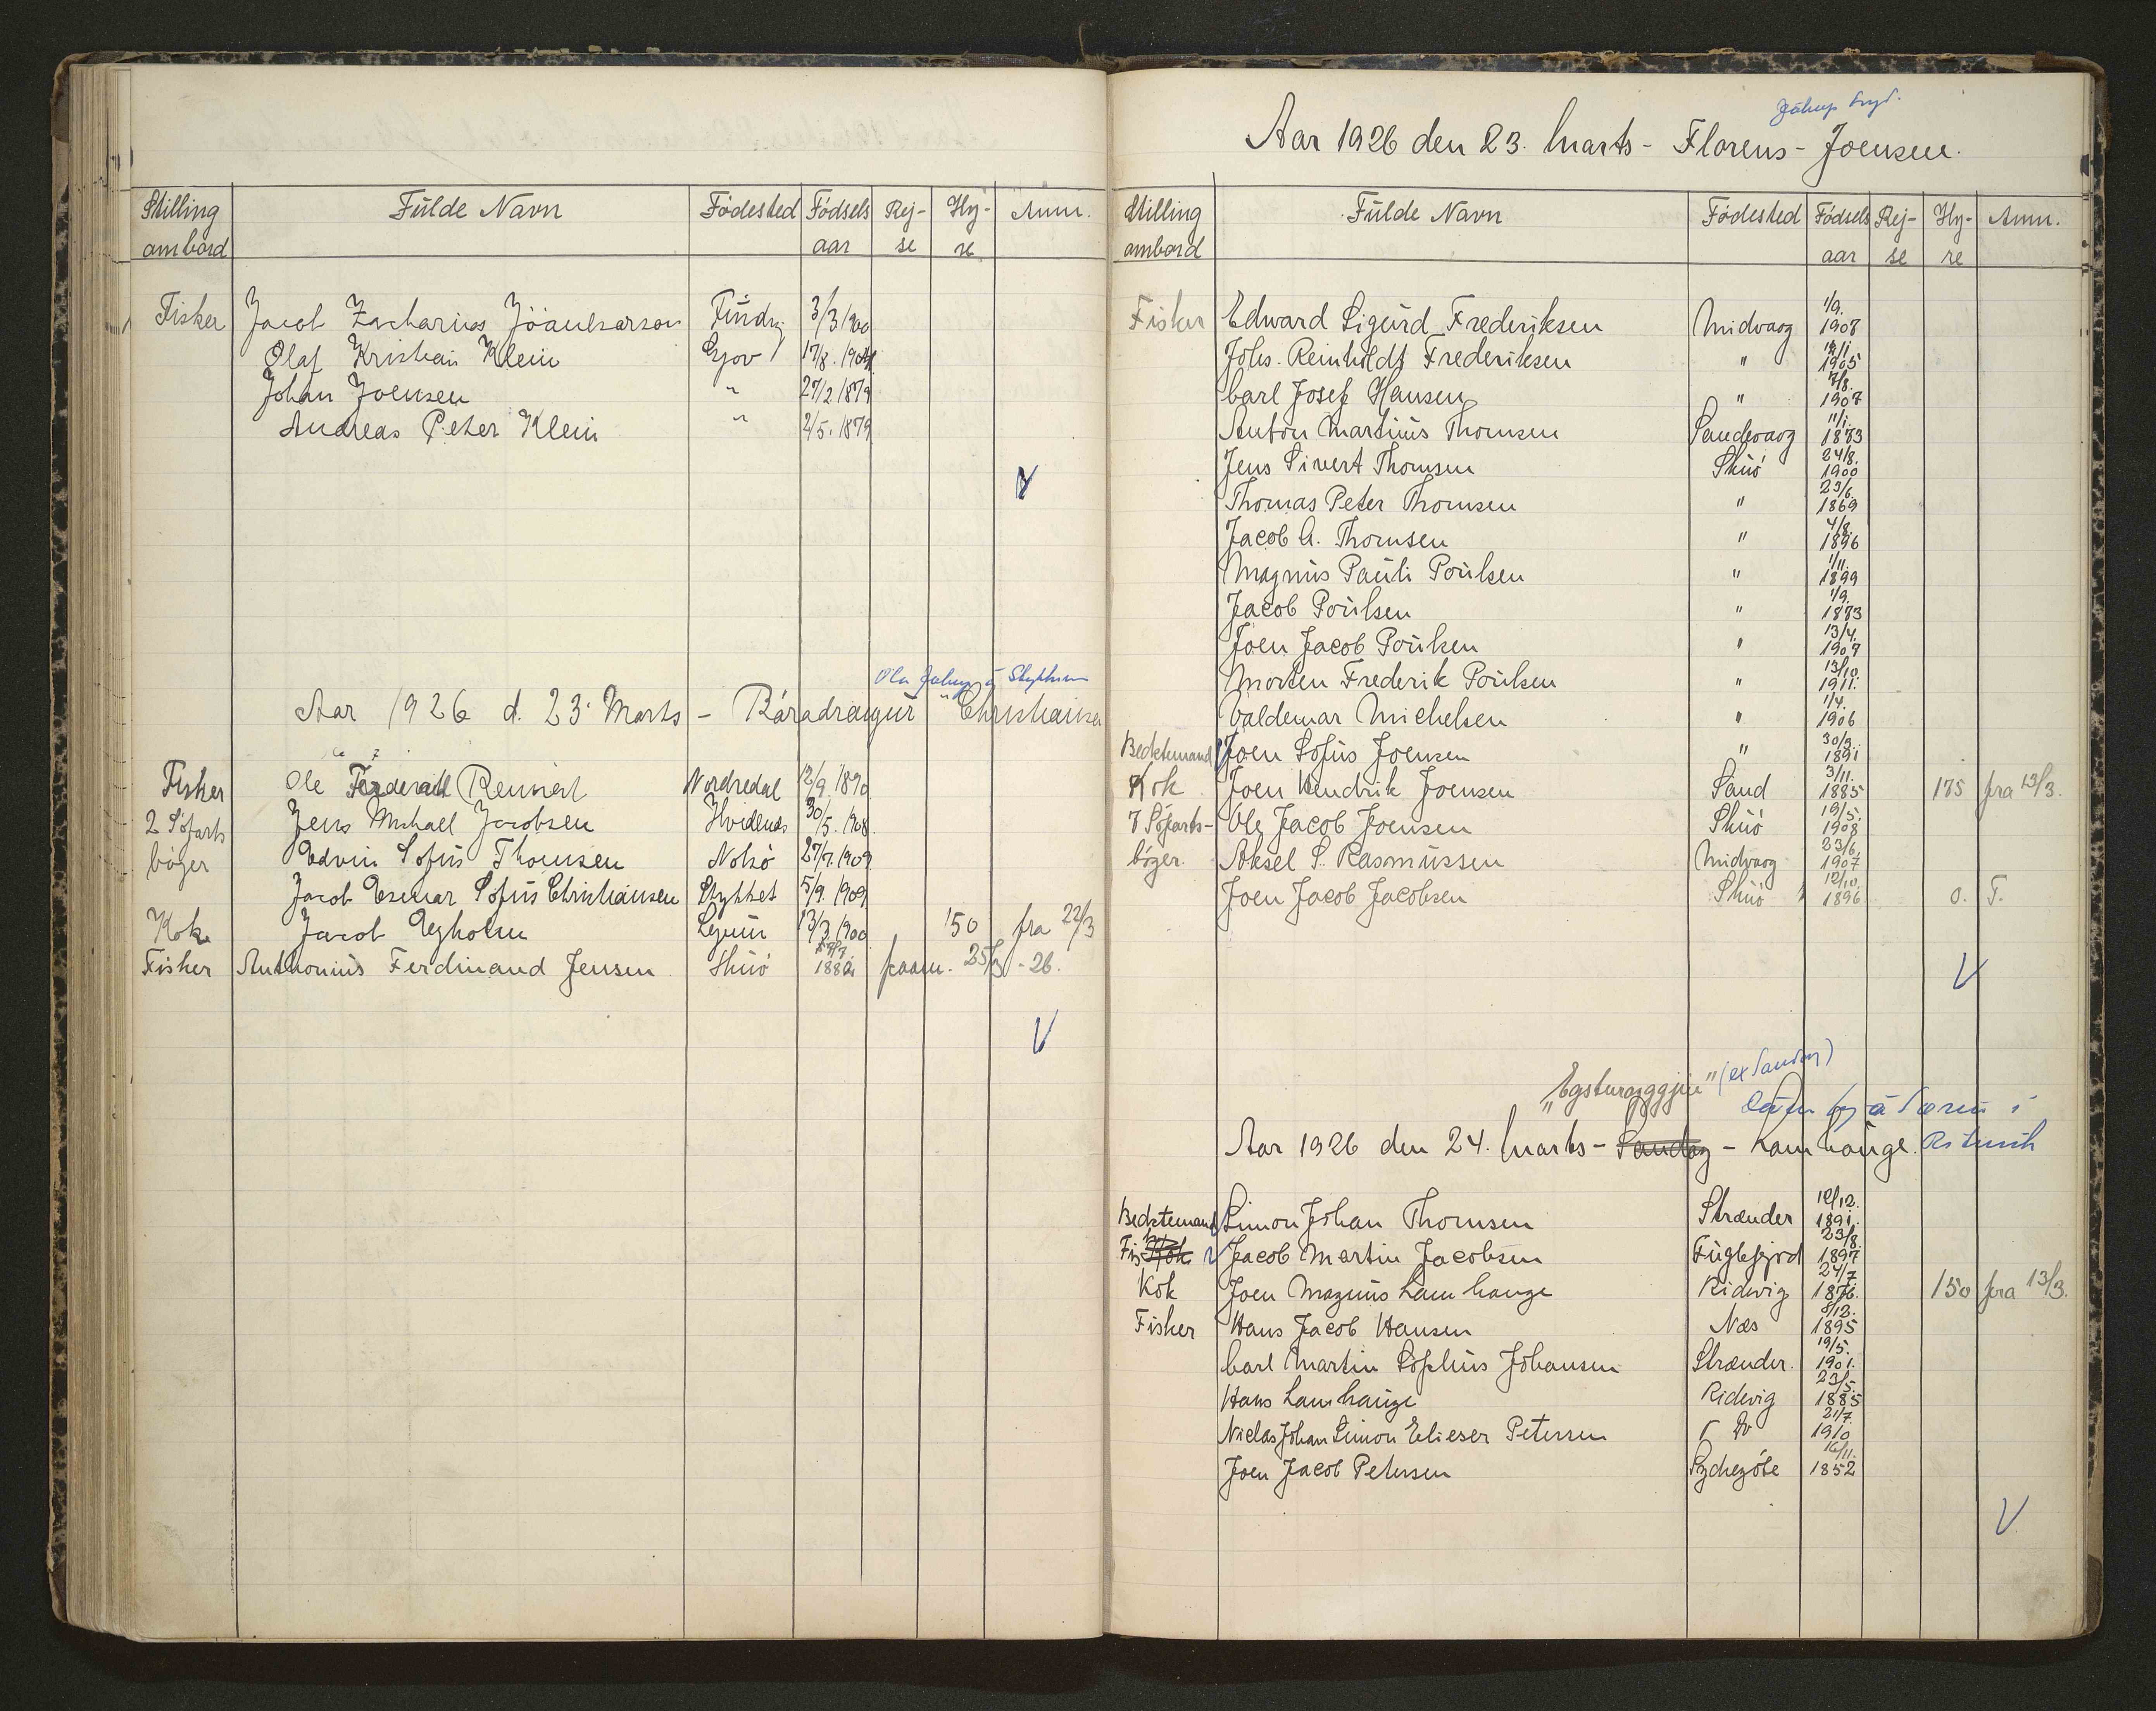 Stilling ombord | Fulde Navn | Födested | Födsels aar | Rej- se | Hy- re | Anm.
Fisker Jacob Zacharias Jóanesarson 3/3 1900
Olaf Kristian Klein Gjov 17/8. 1904
Johan Joensen " 27/2 1879
Andreas Peter Klein " 2/5. 1879
Aar 1926 d. 23. Marts - Ráradrangur - Christiansen
Fisker Ole Rennert Nordredal 12/9 1890
2 Söfarts Jens Michael Jacobsen Hvidenæs 30/5. 1908
böger Edvin Sofus Thomsen Nolsö 27/7. 1909
Jacob Esmar Sofus Christiansen 5/9. 1909
Kok Jacob Egholm 13/3. 1900 150 fra 22/3
Fisker Anthonius Ferdinand Jensen Skuö 1882 25/3 - 26.
Jákup
Aar 1926 den 23. Marts - Florens - Joensen.
Stilling ombord | Fulde Navn | Födested | Födsels aar | Rej- se | Hy- re | Anm.
Fisker Edward Sigurd Frederiksen Midvaag 1/9. 1907
Johs. Reinholdt Frederiksen " 1905
Carl Josef Hansen " 7/8. 1907
Anton Martinus Thomsen Sandevaag 11/1. 1873
Jens Sivert Thomsen Skuö 24/8. 1900
Thomas Peter Thomsen " 23/6. 1869
Jacob A. Thomsen " 4/8. 1896
Magnus Pauli Poulsen " 1/11. 1899
Jacob Poulsen " 1/9. 1873
Joen Jacob Poulsen " 13/4. 1907
Morten Frederik Poulsen " 13/10. 1911.
Valdemar Michelsen " 1/4. 1906
Bedstemand Joen Sofus Joensen " 30/3. 1891
Kok Joen Hendrik Joensen Sand 3/11. 1885 175 fra 13/3.
7 Söfarts- Ole Jacob Joensen Skuö 19/5. 1908
böger. Aksel S. Rasmussen Midvaag 23/6. 1907
Joen Jacob Jacobsen Skuö 12/10. 1896 0. T.
"Egsturoyggjin" (ex Sandoy)
Aar 1926 den 24. Marts - Sandoy - Lamhauge.
Bedstemand Simon Johan Thomsen Strænder 12/12. 1891.
Fis Kok Jacob Martin Jacobsen Fuglefjord 23/8. 1897
Kok Joen Magnus Lamhauge Ridevig 24/7. 1876. 150 fra 13/3.
Fisker Hans Jacob Hansen Næs 8/12. 1895
Carl Martin Sophus Johansen Strænder. 19/5. 1901.
Hans Lamhauge Ridevig 23/5. 1885
Niclas Johan Simon Elieser Petersen Do 21/7. 1910
Joen Jacob Petersen Sydregöte 16/11. 1852